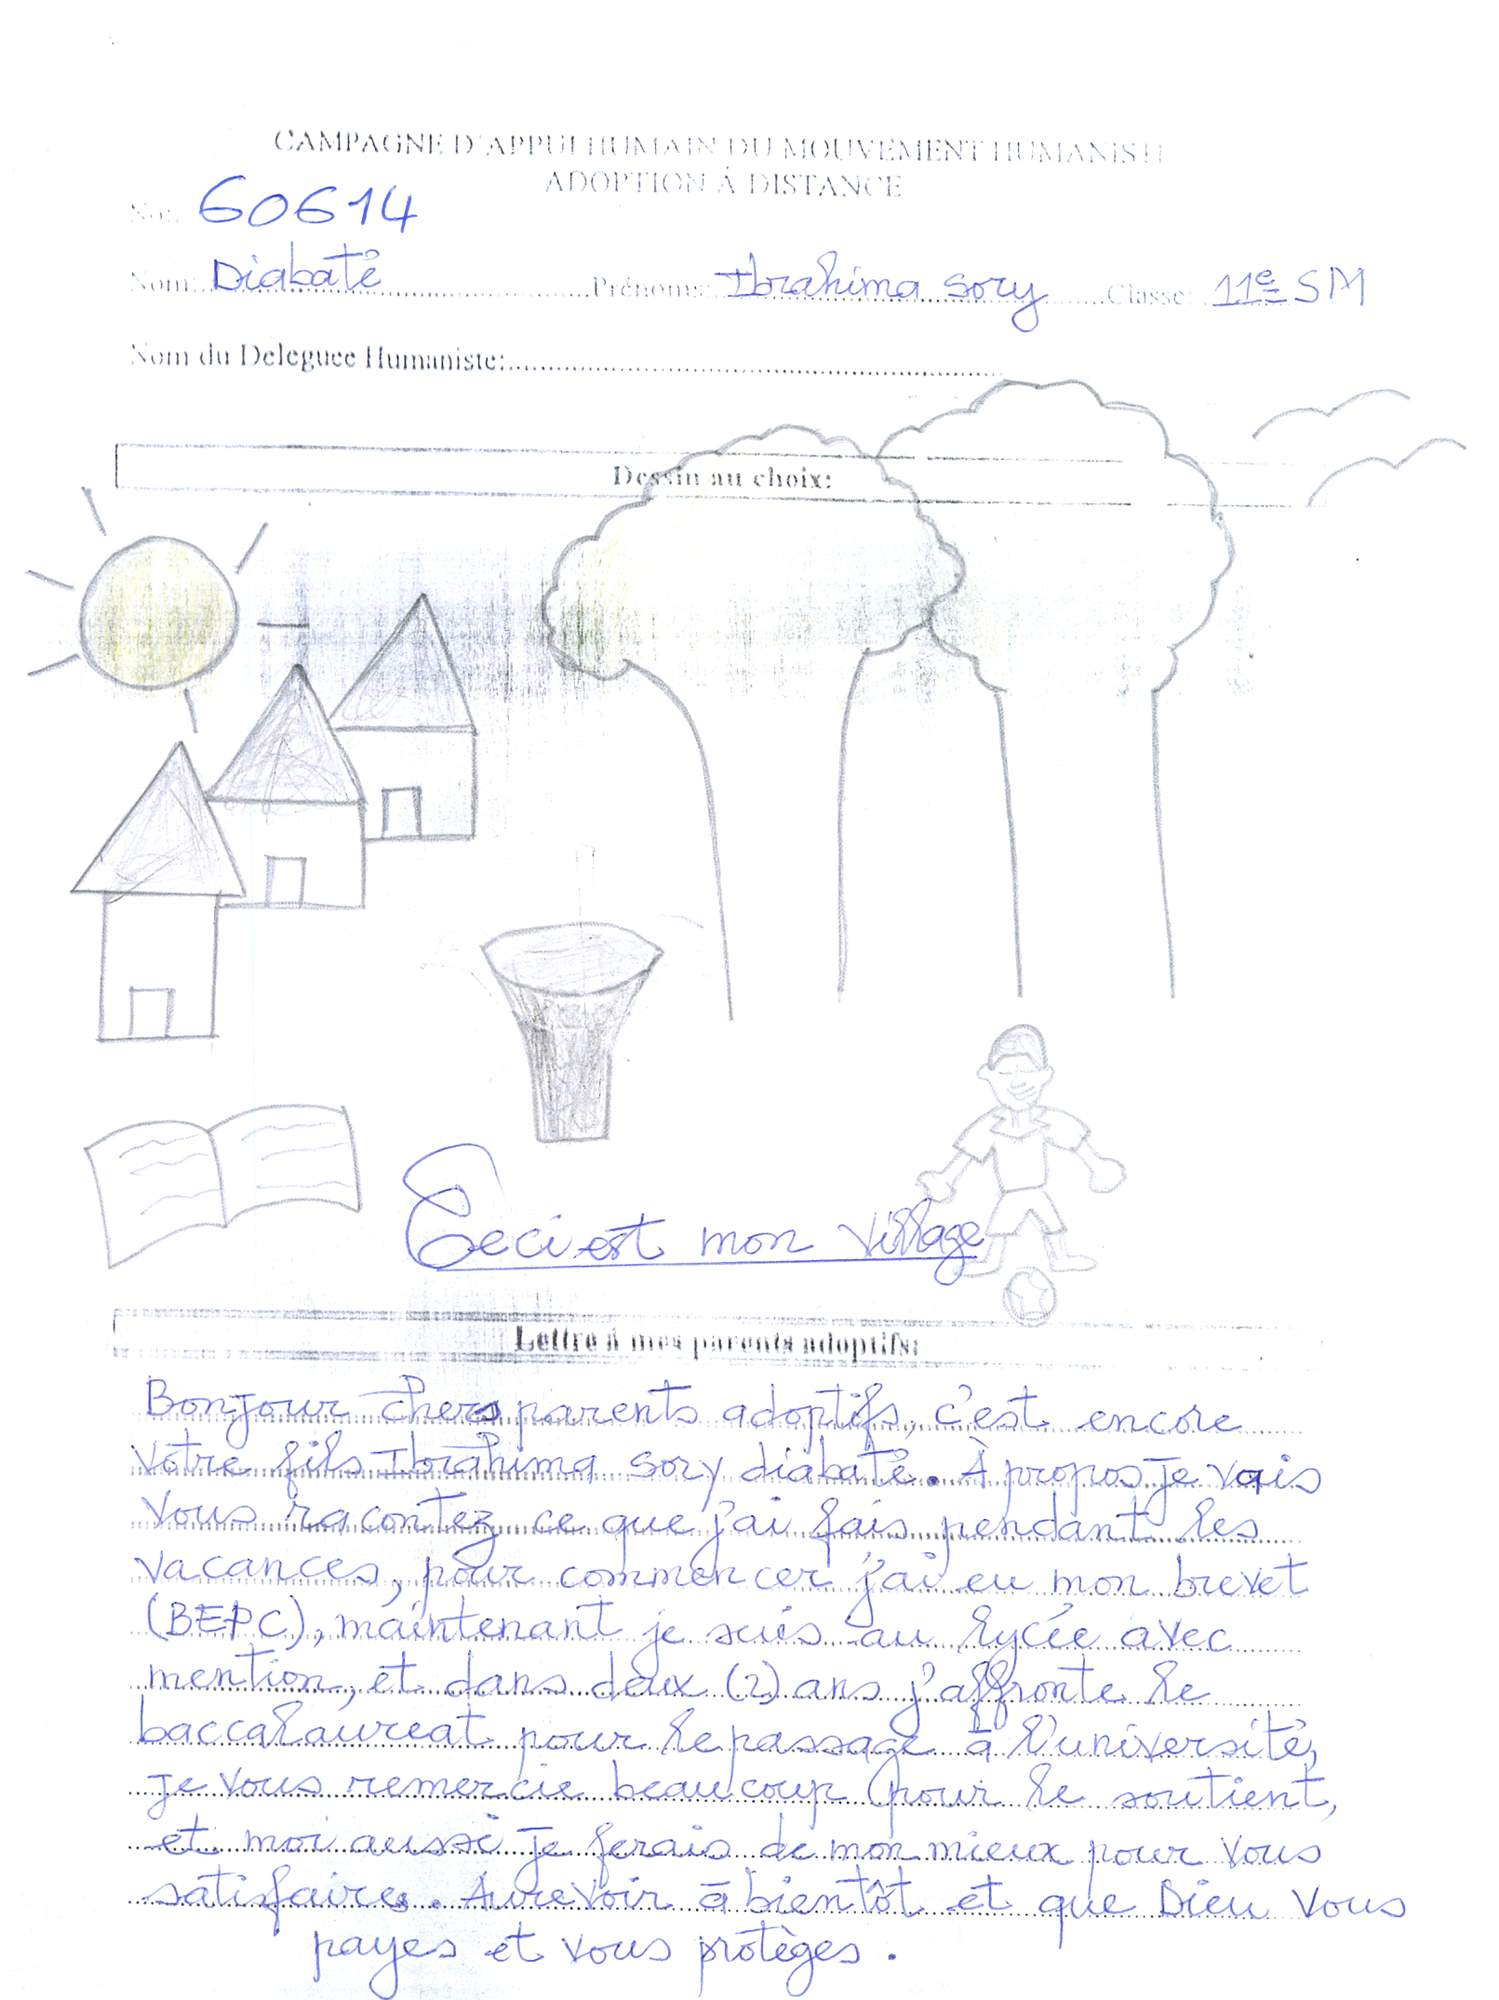 CAMPAGNE D'APPUI HUMAIN DU MOUVEMENT HUMANISTE
ADOPTION Á DISTANCE
No: 60614
Nom: Diabaté Prénoms: Ibrahima Sory Classe: 11e SM
Nom du Deleguee Humaniste:
Dessin au choix:
Ceci est mon village
Lettre á mes parents adoptifs:
Bonjour chers parents adoptifs, c'est encore
votre fils Ibrahima Sory diabaté. À propos je vais
vous racontez ce que j'ai fais pendant les
vacances, pour commencer j'ai eu mon brevet
(BEPC), maintenant je suis au lycée avec
mention, et dans deux (2) ans j'affronte le
baccalaureat pour le passage à l'université,
je vous remercie beaucoup pour le soutient,
et moi aussi je ferais de mon mieux pour vous
satisfaires. Aurevoir à bientôt et que Dieu vous
payes et vous protèges.